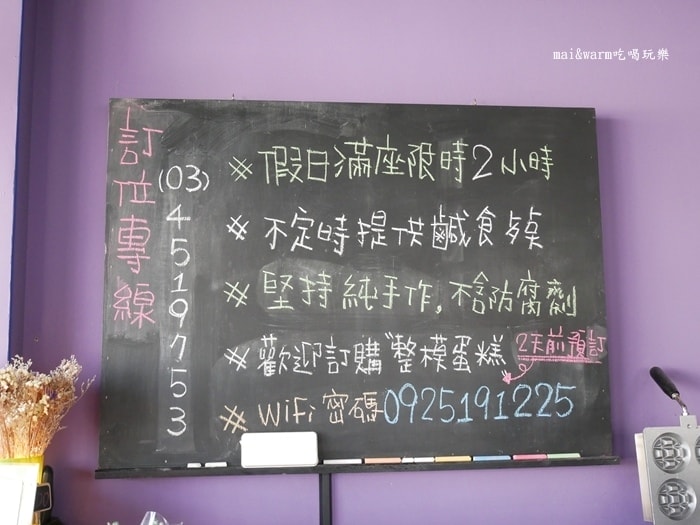 mai&warm吃喝玩樂
訂位專線
(03)
4519753
※ 假日滿座限時2小時
※ 不定時提供鹹食
※ 堅持純手作,不含防腐劑
※ 歡迎訂購"整模蛋糕 2天前預訂
※ WiFi密碼0925191225